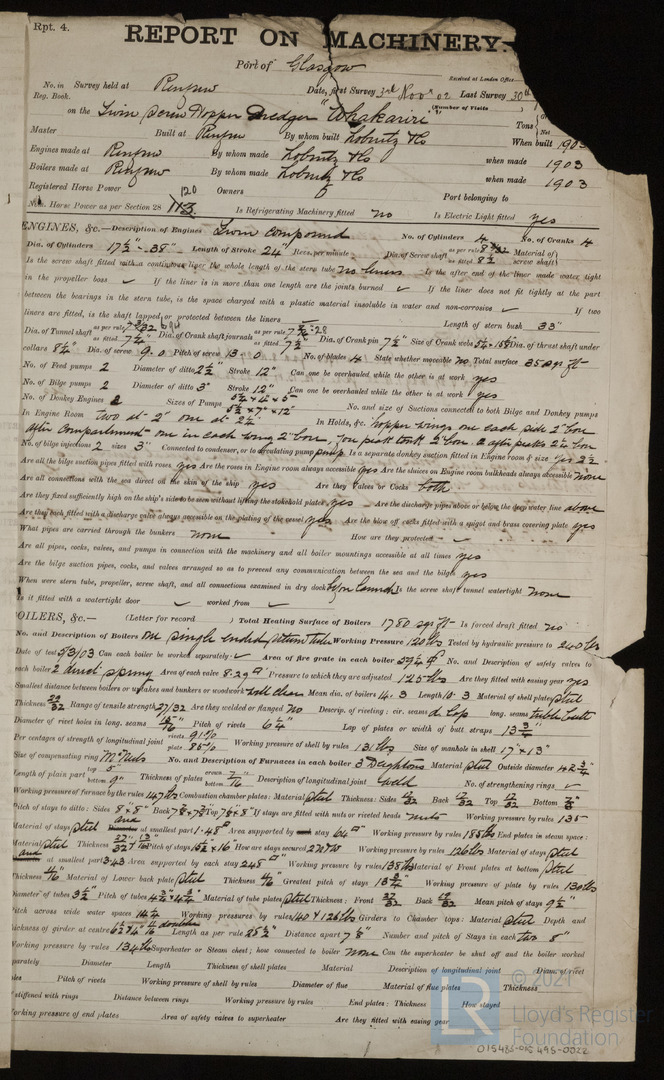 Rpt. 4.
REPORT ON MACHINERY.
Port of Glasgow
Received at London Office
No. in Survey held at Renfrew Date, first Survey 3rd Nov 02 Last Survey 30th
Reg. Book. (Number of Visits
on the Twin Screw Hopper Dredger "Whakariri" Tons
Master Built at Renfrew By whom built Lobnitz & Co When built 1903
Engines made at Renfrew By whom made Lobnitz & Co when made 1903
Boilers made at Renfrew By whom made Lobnitz & Co when made 1903
Registered Horse Power Owners Port belonging to
Nom. Horse Power as per Section 28 120 113 Is Refrigerating Machinery fitted no Is Electric Light fitted yes
ENGINES, &c.—Description of Engines Twin Compound No. of Cylinders 4 No. of Cranks 4
Dia. of Cylinders 17½"-38" Length of Stroke 24" Revs. per minute Dia. of Screw shaft as per rule as fitted 8½ Material of screw shaft
Is the screw shaft fitted with a continuous liner the whole length of the stern tube no liners Is the after end of the liner made water tight
in the propeller boss ✓ If the liner is in more than one length are the joints burned ✓ If the liner does not fit tightly at the part
between the bearings in the stern tube, is the space charged with a plastic material insoluble in water and non-corrosive ✓ If two
liners are fitted, is the shaft lapped or protected between the liners Length of stern bush 33"
Dia. of Tunnel shaft as per rule as fitted 7¼" Dia. of Crank shaft journals as per rule as fitted 7½" Dia. of Crank pin 7½" Size of Crank webs Dia. of thrust shaft under
collars 8¼" Dia. of screw 9.0 Pitch of screw 13.0 No. of blades 4 State whether moveable no Total surface 35 sqr ft
No. of Feed pumps 2 Diameter of ditto 2½" Stroke 12" Can one be overhauled while the other is at work yes
No. of Bilge pumps 2 Diameter of ditto 3" Stroke 12" Can one be overhauled while the other is at work yes
No. of Donkey Engines 2 Sizes of Pumps No. and size of Suctions connected to both Bilge and Donkey pumps
In Engine Room two at 2" one at 2½" In Holds, &c. hopper wings one each side 2" bore
after compartment one in each wing 2" bore, fore peak tank 2" bore. 2 after peaks 2½" bore
No. of bilge injections 2 sizes 3" Connected to condenser, or to circulating pump pump Is a separate donkey suction fitted in Engine room & size yes 2½
Are all the bilge suction pipes fitted with roses yes Are the roses in Engine room always accessible yes Are the sluices on Engine room bulkheads always accessible none
Are all connections with the sea direct on the skin of the ship yes Are they Valves or Cocks both
Are they fixed sufficiently high on the ship's side to be seen without lifting the stokehold plates yes Are the discharge pipes above or below the deep water line above
Are they each fitted with a discharge valve always accessible on the plating of the vessel yes Are the blow off cocks fitted with a spigot and brass covering plate yes
What pipes are carried through the bunkers none How are they protected ✓
Are all pipes, cocks, valves, and pumps in connection with the machinery and all boiler mountings accessible at all times yes
Are the bilge suction pipes, cocks and valves arranged so as to prevent any communication between the sea and the bilges yes
When were stern tube, propeller, screw shaft, and all connections examined in dry dock Is the screw shaft tunnel watertight none
Is it fitted with a watertight door ✓ worked from ✓
BOILERS, &c.— (Letter for record ) Total Heating Surface of Boilers 1780 sqr ft Is forced draft fitted no
No. and Description of Boilers One single ended return tube Working Pressure 120 lbs Tested by hydraulic pressure to 240 lbs
Date of test 5/3/03 Can each boiler be worked separately ✓ Area of fire grate in each boiler No. and Description of safety valves to
each boiler 2 direct spring Area of each valve 8.29 Pressure to which they are adjusted 125 lbs Are they fitted with easing gear yes
Smallest distance between boilers or uptakes and bunkers or woodwork well clear Mean dia. of boilers 14.3 Length 10.3 Material of shell plates steel
Thickness Range of tensile strength 27/32 Are they welded or flanged no Descrip. of riveting: cir. seams d. lap long. seams treble butt
Diameter of rivet holes in long. seams Pitch of rivets 6¼" Lap of plates or width of butt straps 13¾"
Per centages of strength of longitudinal joint rivets 91% plate 85% Working pressure of shell by rules 131 lbs Size of manhole in shell 17" x 13"
Size of compensating ring McNeils No. and Description of Furnaces in each boiler 3 Deightons Material steel Outside diameter 42¾"
Length of plain part top 5" bottom 9" Thickness of plates crown bottom 7/16" Description of longitudinal joint weld No. of strengthening rings ✓
Working pressure of furnace by the rules 147 lbs Combustion chamber plates: Material steel Thickness: Sides Back Top Bottom
Pitch of stays to ditto: Sides 8" x 8" Back Top If stays are fitted with nuts or riveted heads nuts Working pressure by rules 135
Material of stays steel at smallest part 1.48 Area supported by each stay 64 Working pressure by rules 185 lbs End plates in steam space:
Material steel Thickness Pitch of stays How are stays secured Working pressure by rules 126 lbs Material of stays steel
at smallest part 3.43 Area supported by each stay 248 Working pressure by rules 138 lbs Material of Front plates at bottom steel
Thickness Material of Lower back plate steel Thickness Greatest pitch of stays 13¾" Working pressure of plate by rules 130 lbs
Diameter of tubes 3½" Pitch of tubes Material of tube plates steel Thickness: Front Back Mean pitch of stays 9½"
Pitch across wide water spaces 14¼ Working pressures by rules 140 & 126 lbs Girders to Chamber tops: Material steel Depth and
thickness of girder at centre Length as per rule 25½" Distance apart 7⅞" Number and pitch of Stays in each two 8"
Working pressure by rules 134 lbs Superheater or Steam chest; how connected to boiler none Can the superheater be shut off and the boiler worked
separately Diameter Length Thickness of shell plates Material Description of longitudinal joint Diam. of rivet
Pitch of rivets Working pressure of shell by rules Diameter of flue Material of flue plates Thickness
If stiffened with rings Distance between rings Working pressure by rules End plates: Thickness How stayed
Working pressure of end plates Area of safety valves to superheater Are they fitted with easing gear
© 2021
LR
Lloyd's Register
Foundation
015485-015495-0022